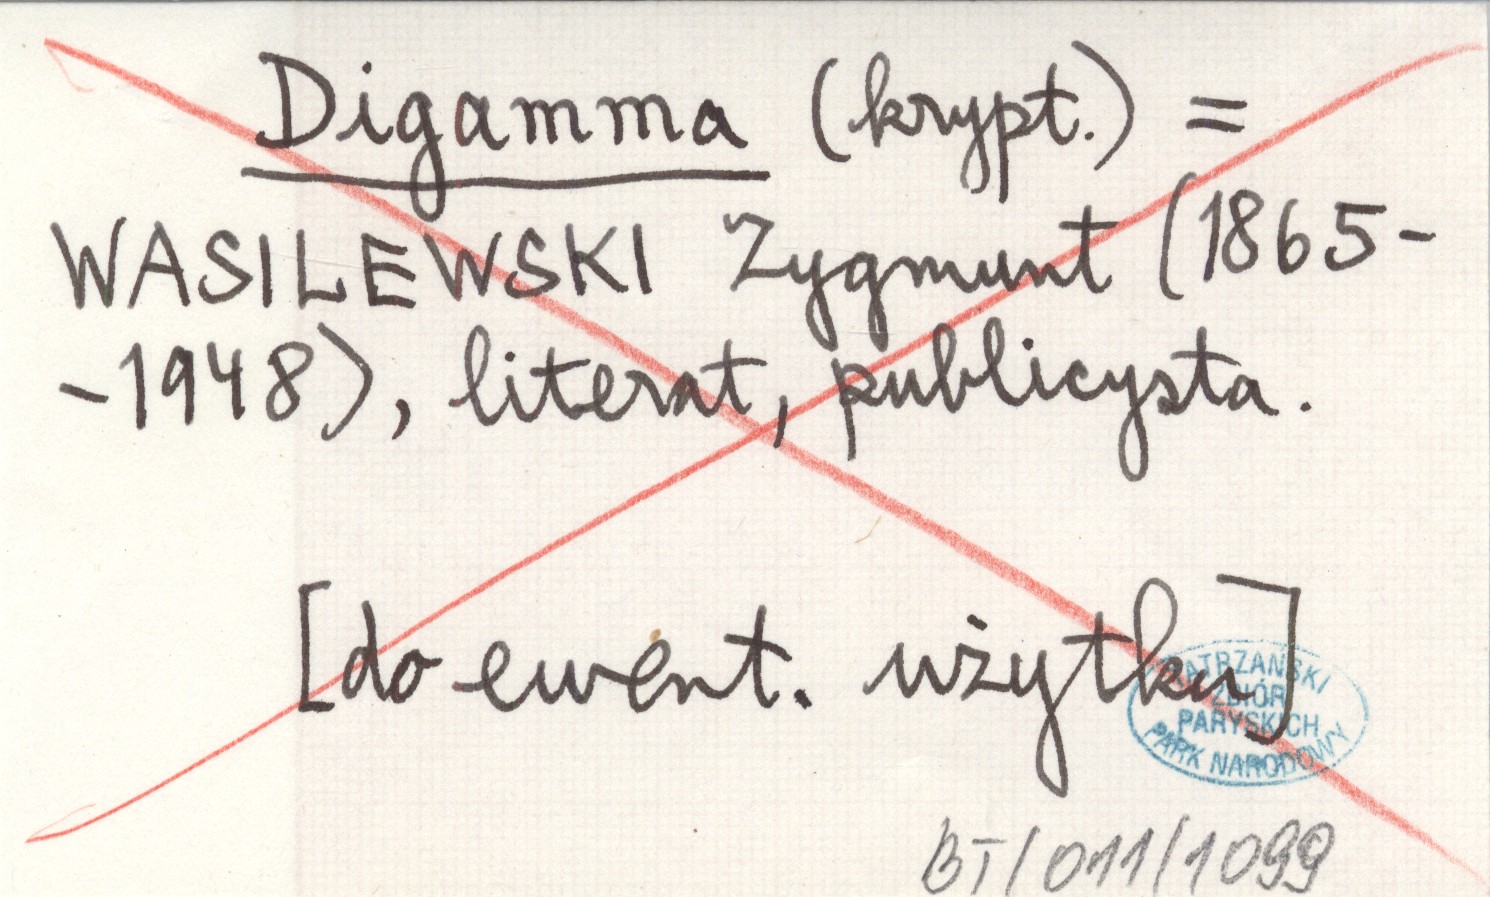 Digamma (krypt.) =
WASILEWSKI Zygmunt (1865-
-1948), literat, publicysta.
[do ewent. użytku]
TATRZAŃSKI
ZBIÓR
PARYSKICH
PARK NARODOWY
BT/011/1099